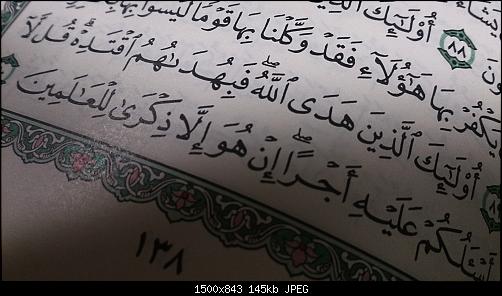 ٨٨ أُوْلَٰٓئِكَ
يَكْفُرْ بِهَا هَٰٓؤُلَآءِ فَقَدْ وَكَّلْنَا بِهَا قَوْمًا لَّيْسُوا۟ بِهَا
أُوْلَٰٓئِكَ ٱلَّذِينَ هَدَى ٱللَّهُ ۖ فَبِهُدَىٰهُمُ ٱقْتَدِهْ ۗ قُل لَّآ
أَسْـَٔلُكُمْ عَلَيْهِ أَجْرًا ۖ إِنْ هُوَ إِلَّا ذِكْرَىٰ لِلْعَٰلَمِينَ
١٣٨
1500x843 145kb JPEG